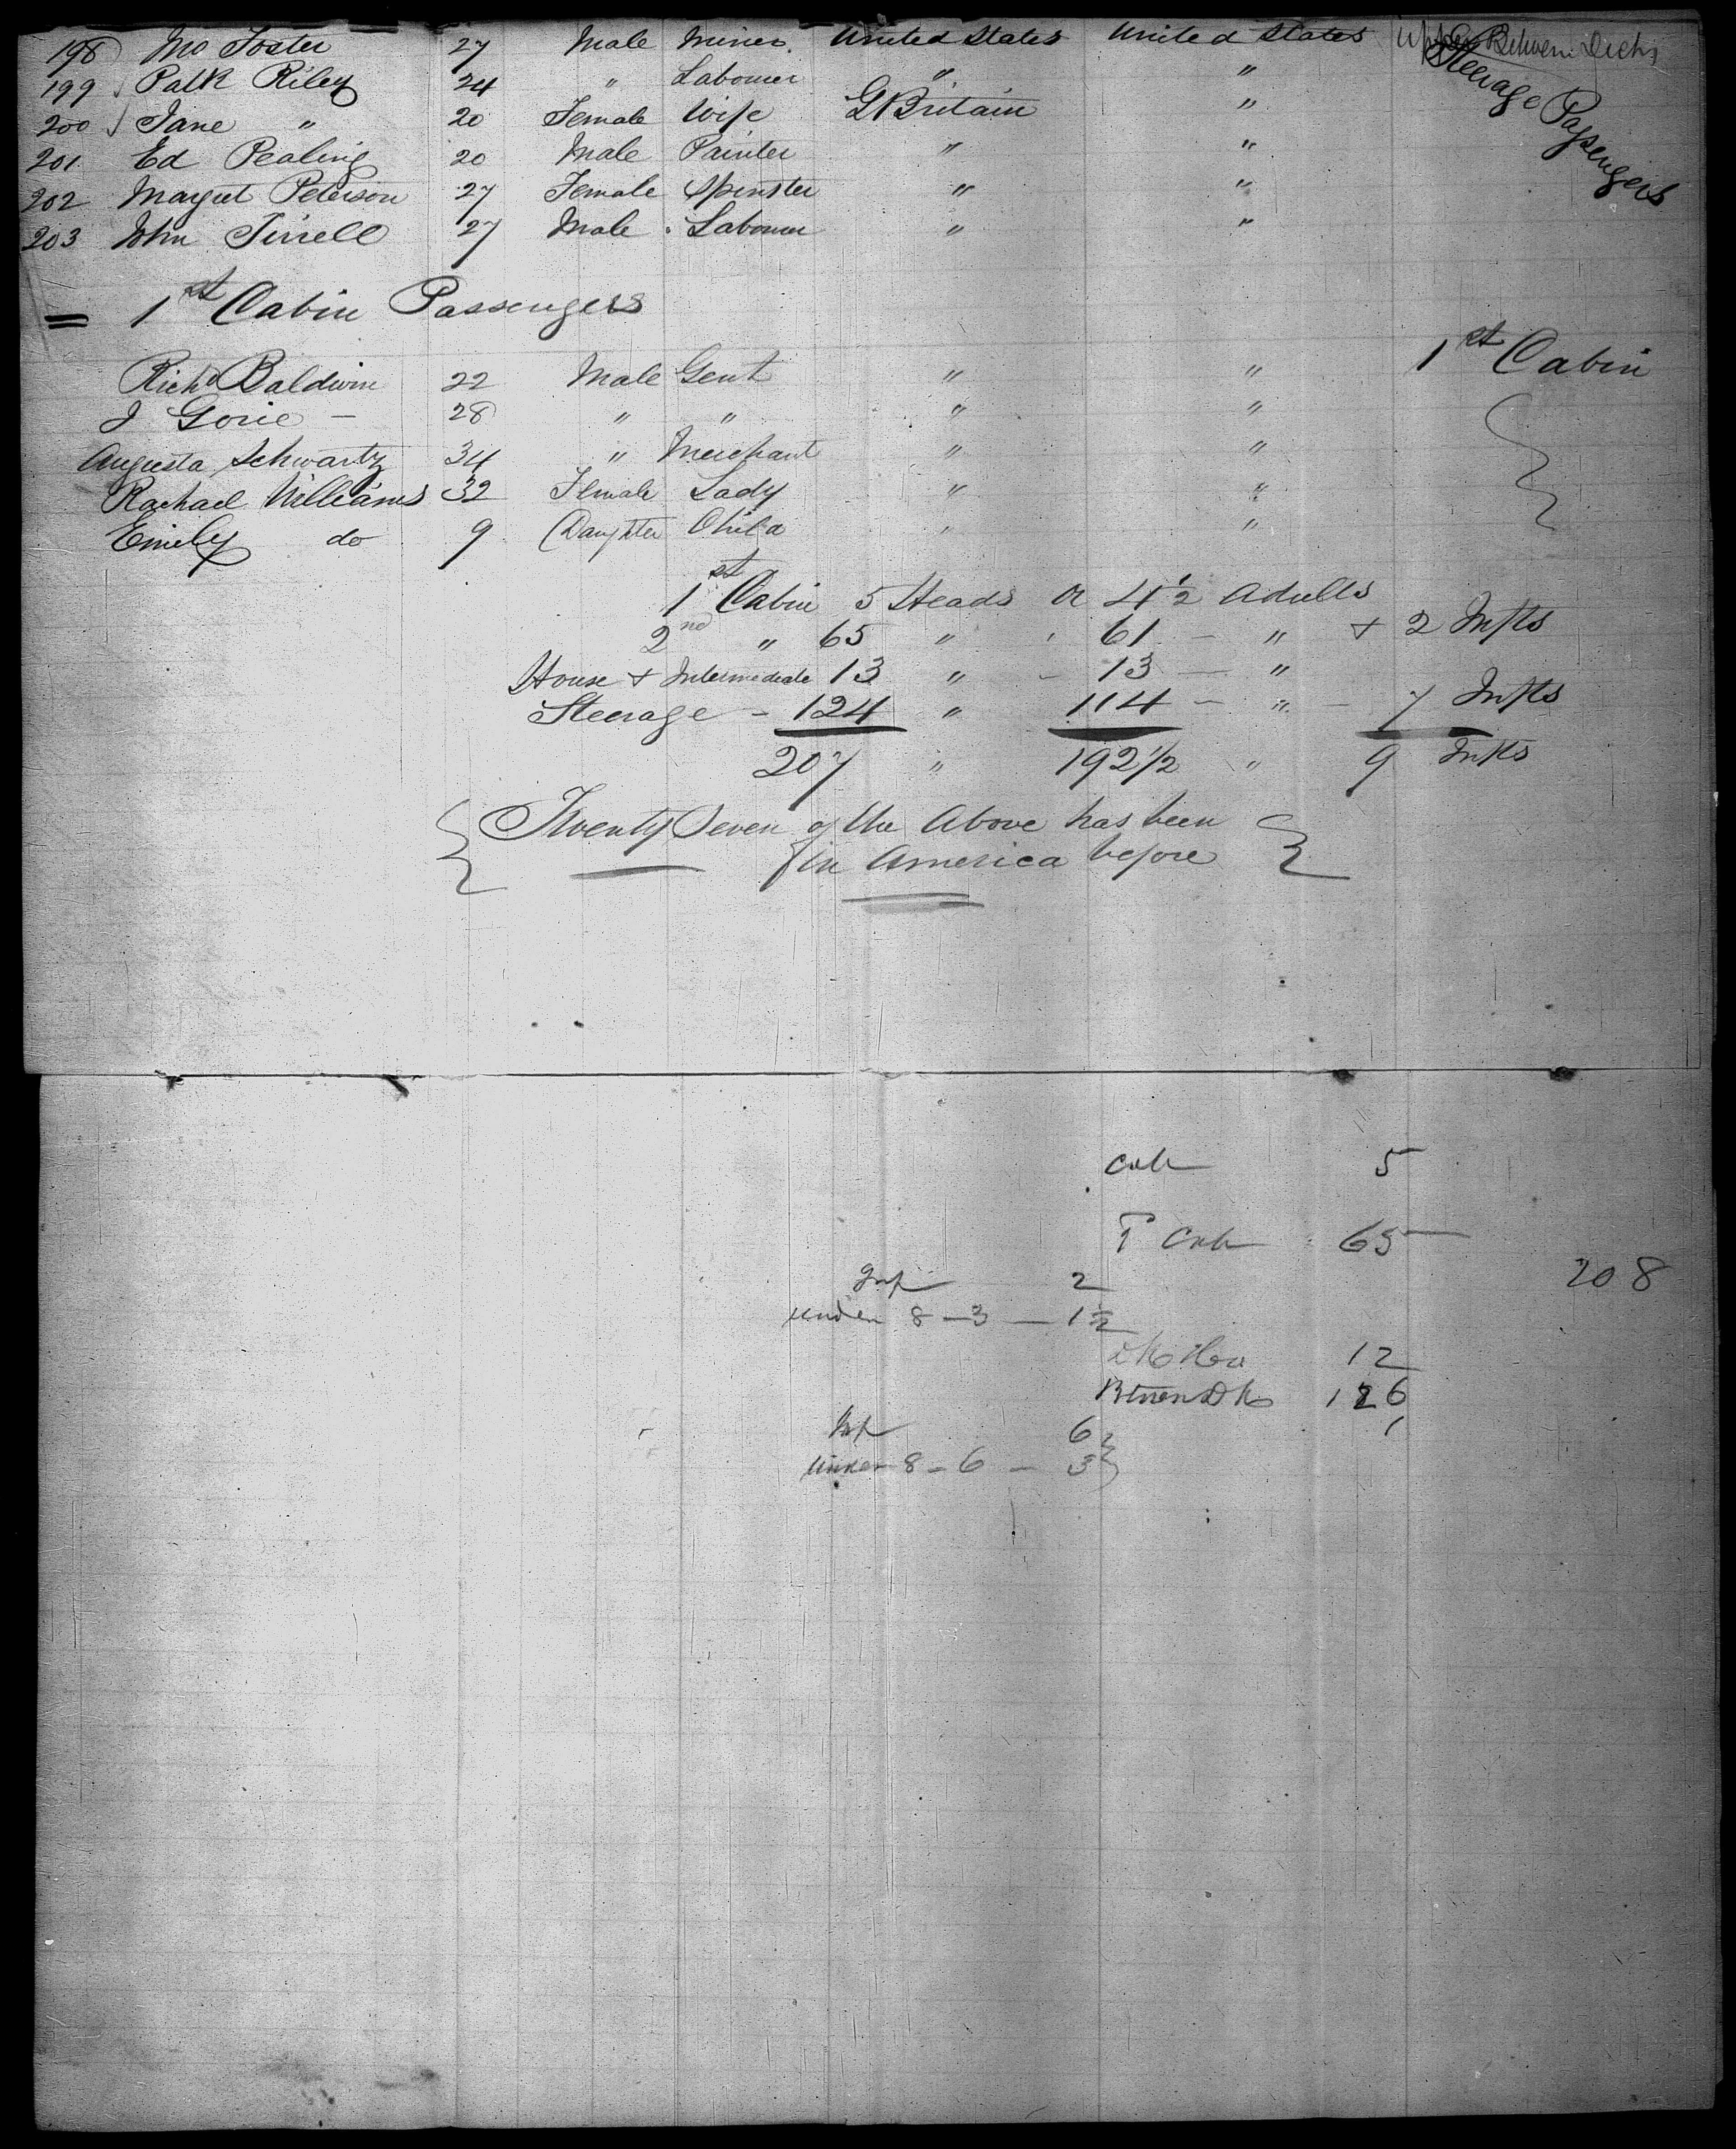 198 Mo Foster 27 Male Miner United States United States Upper Between Decks
199 Patk Riley 24 " Labourer " " Steerage Passengers
200 Jane " 20 Female Wife G Britain "
201 Ed Pealing 20 Male Painter " "
202 Margret Peterson 27 Female Spinster " "
203 John Tirrell 27 Male Labourer " "
= 1st Cabin Passengers
1st Cabin
Richd Baldwin 22 Male Gent " "
J Gorie - 28 " " " "
Augusta Schwartz 34 " Merchant " "
Rachael Williams 32 Female Lady " "
Emily do 9 (Daughter Child " "
1st Cabin 5 Heads or 4 1/2 Adults
2nd " 65 " " 61 - " + 2 Infts
House + Intermediate 13 " - 13 - "
Steerage - 124 " 114 - " - 7 Infts
207 " 192 1/2 " 9 Infts
Twenty Seven of the Above has been
in America before
Cab 5
Cab 65
208
Inf 2
under 8 - 3 - 1 1/2
12
126
Inf 6
under 8 - 6 - 3